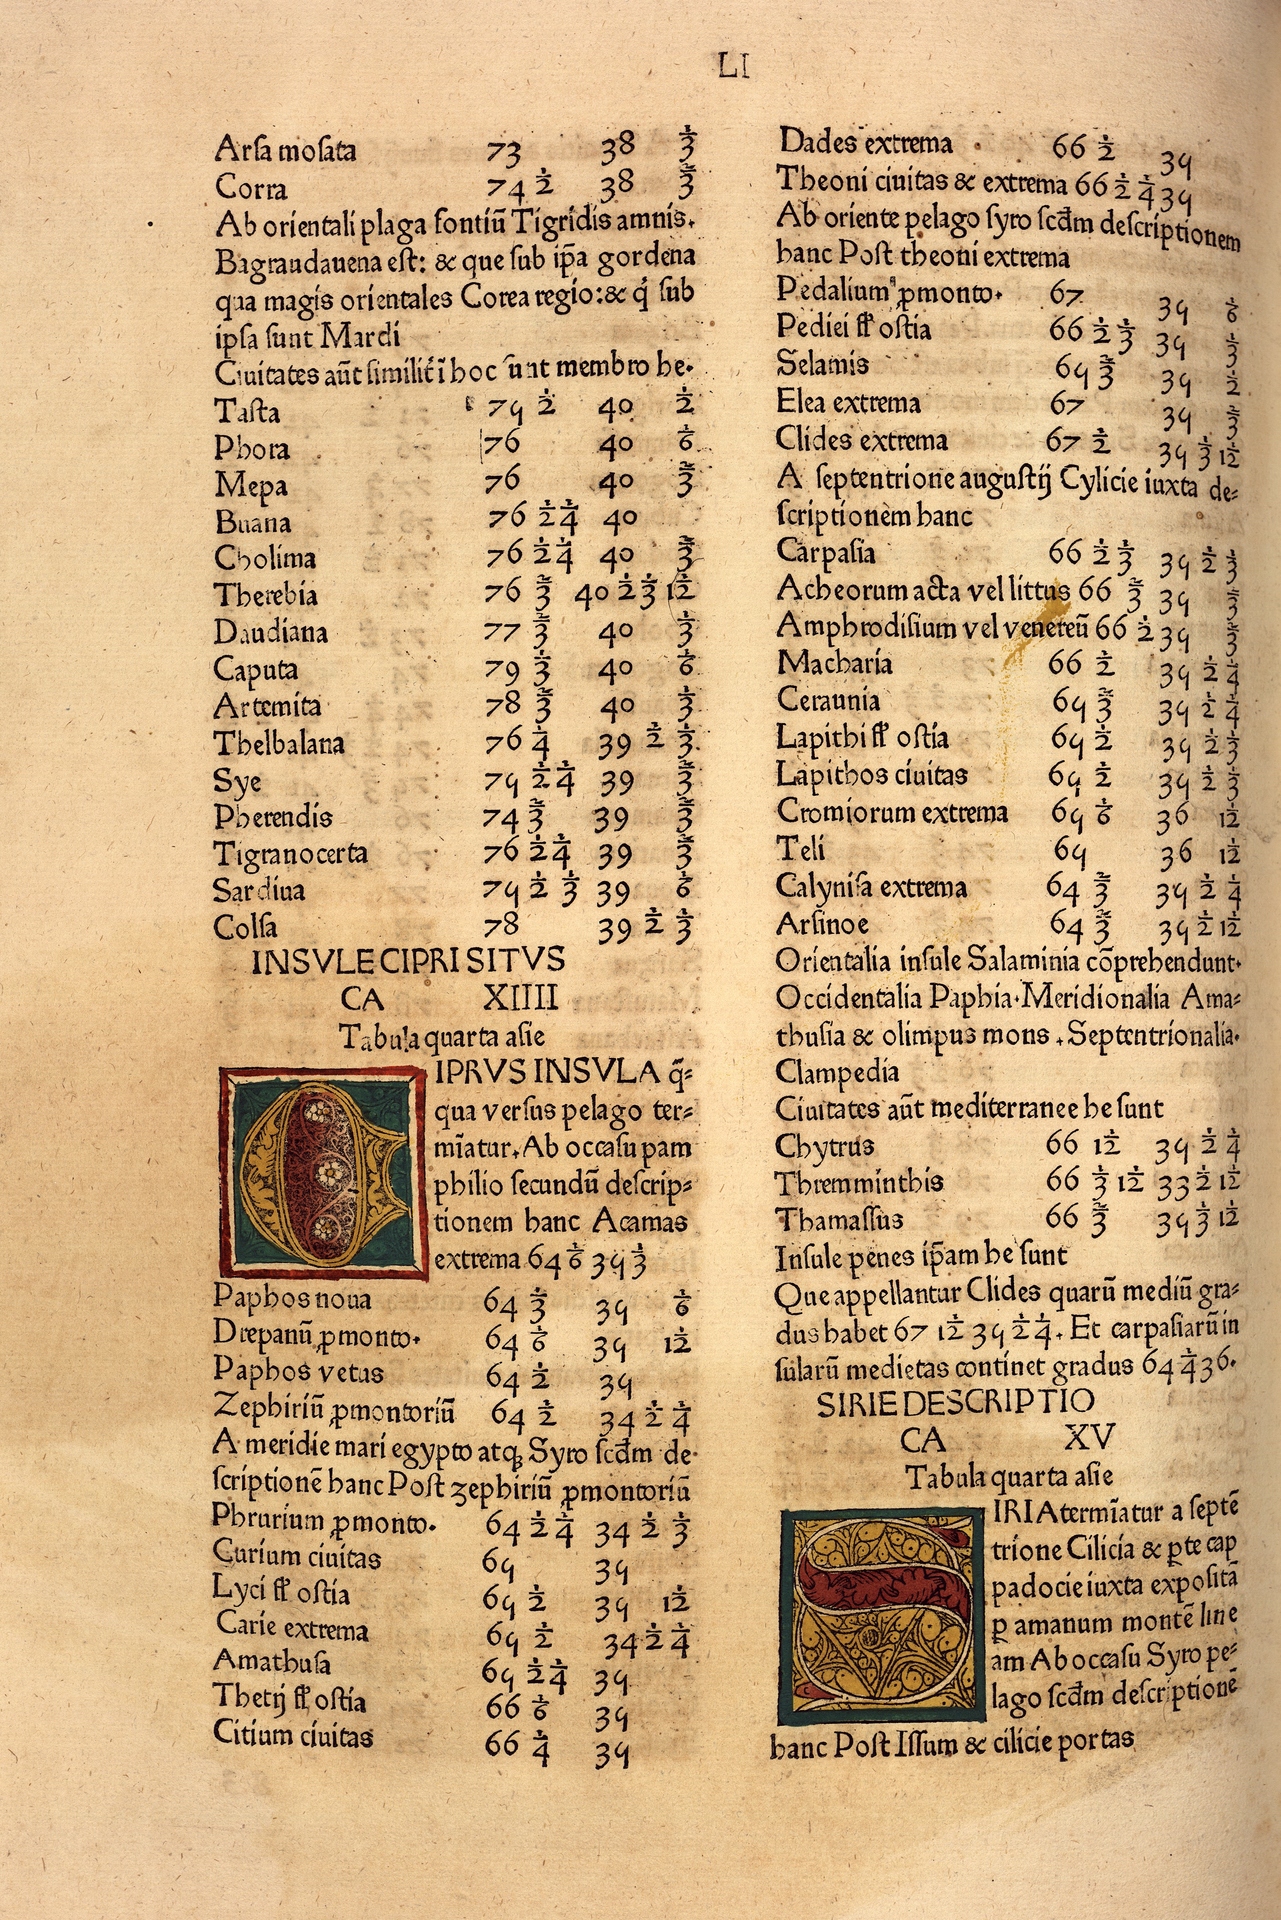 LI
Arſa moſata 73 38 ⅓
Corra 74 ½ 38 ⅔
Ab orientali plaga fontiū Tigridis amnis.
Bagraudauena eſt: & que ſub ip̄a gordena
qua magis orientales Corea regio: & q̄ ſub
ipſa ſunt Mardi
Ciuitates aūt ſimilit̄ ī hoc ſunt membro he.
Taſta 75 ½ 40 ½
Phora 76 40 ⅙
Mepa 76 40 ⅔
Buana 76 ½ ¼ 40
Cholima 76 ½ ¼ 40 ⅔
Therebia 76 ⅔ 40 ½ ⅓ 1/12
Daudiana 77 ⅔ 40 ⅓
Caputa 79 ⅓ 40 ⅙
Artemita 78 ⅔ 40 ⅓
Thelbalana 76 ¼ 39 ½ ⅓
Sye 75 ½ ¼ 39 ⅔
Pherendis 74 ⅔ 39 ⅔
Tigranocerta 76 ½ ¼ 39 ⅔
Sardiua 75 ½ ⅓ 39 ⅙
Colſa 78 39 ½ ⅓
INSVLE CIPRI SITVS
CA XIIII
Tabula quarta aſie
CIPRVS INSVLA q̄=
qua verſus pelago ter=
mīatur. Ab occaſu pam
philio ſecundū deſcrip=
tionem hanc Acamas
extrema 64 ⅙ 35 ⅓
Paphos noua 64 ⅓ 35 ⅙
Drepanū ꝓmonto. 64 ⅙ 35 1/12
Paphos vetus 64 ½ 35
Zephiriū ꝓmontoriū 64 ½ 34 ½ ¼
A meridie mari egypto atqꝫ Syro ſcd̄m de
ſcriptionē hanc Poſt zephiriū ꝓmontoriū
Phrurium ꝓmonto. 64 ½ ¼ 34 ½ ⅓
Curium ciuitas 65 35
Lyci fl̄ oſtia 65 ½ 35 1/12
Carie extrema 65 ½ 34 ½ ¼
Amathuſa 65 ½ ¼ 35
Thetij fl̄ oſtia 66 ⅙ 35
Citium ciuitas 66 ¼ 35
Dades extrema 66 ½ 35
Theoni ciuitas & extrema 66 ½ ¼ 35
Ab oriente pelago ſyro ſcd̄m deſcriptionem
hanc Poſt theoni extrema
Pedalium ꝓmonto. 67 35 ⅙
Pediei fl̄ oſtia 66 ½ ⅓ 35 ⅓
Selamis 65 ⅔ 35 ½
Elea extrema 67 35 ⅔
Clides extrema 67 ½ 35 ⅓ 1/12
A ſeptentrione auguſtij Cylicie iuxta de=
ſcriptionem hanc
Carpaſia 66 ½ ⅓ 35 ½ ⅓
Acheorum acta vel littus 66 ⅔ 35 ⅔
Amphrodiſium vel venereū 66 ½ 35 ⅔
Macharia 66 ½ 35 ½ ¼
Ceraunia 65 ⅔ 35 ½ ¼
Lapithi fl̄ oſtia 65 ½ 35 ½ ⅓
Lapithos ciuitas 65 ½ 35 ½ ⅓
Cromiorum extrema 65 ⅙ 36 1/12
Teli 65 36 1/12
Calyniſa extrema 64 ⅔ 35 ½ ¼
Arſinoe 64 ⅔ 35 ½ 1/12
Orientalia inſule Salaminia cōprehendunt.
Occidentalia Paphia. Meridionalia Ama=
thuſia & olimpus mons. Septentrionalia.
Clampedia
Ciuitates aūt mediterranee he ſunt
Chytrus 66 1/12 35 ½ ¼
Thremminthis 66 ⅓ 1/12 33 ½ 1/12
Thamaſſus 66 ⅔ 35 ⅓ 1/12
Inſule penes ip̄am he ſunt
Que appellantur Clides quarū mediū gra=
dus habet 67 1/12 35 ½ ¼. Et carpaſiarū in
ſularū medietas continet gradus 64 ¼ 36.
SIRIE DESCRIPTIO
CA XV
Tabula quarta aſie
SIRIA termīatur a ſeptē
trione Cilicia & ꝑte cap
padocie iuxta expoſitā
ꝑ amanum montē line
am Ab occaſu Syro pe=
lago ſcd̄m deſcriptionē
hanc Poſt Iſſum & cilicie portas